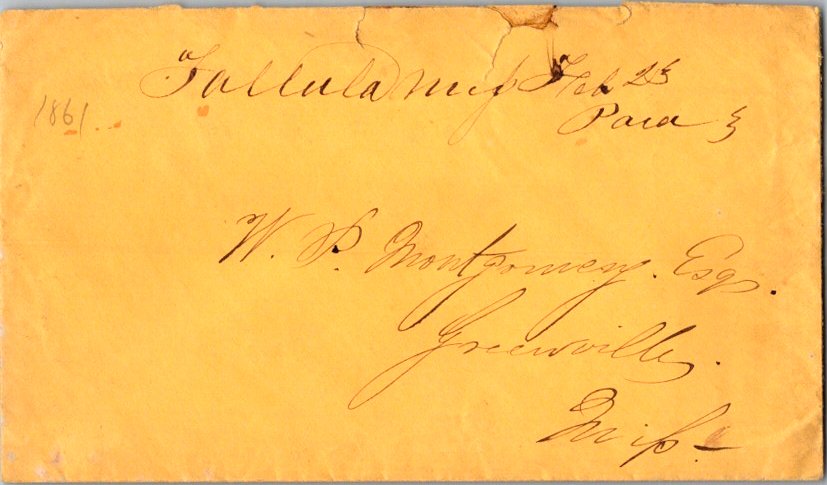 Tallula Miſs Feb 23
Paid 3
1861
W. P. Montgomery. Esq.
Greenville.
Miſs.